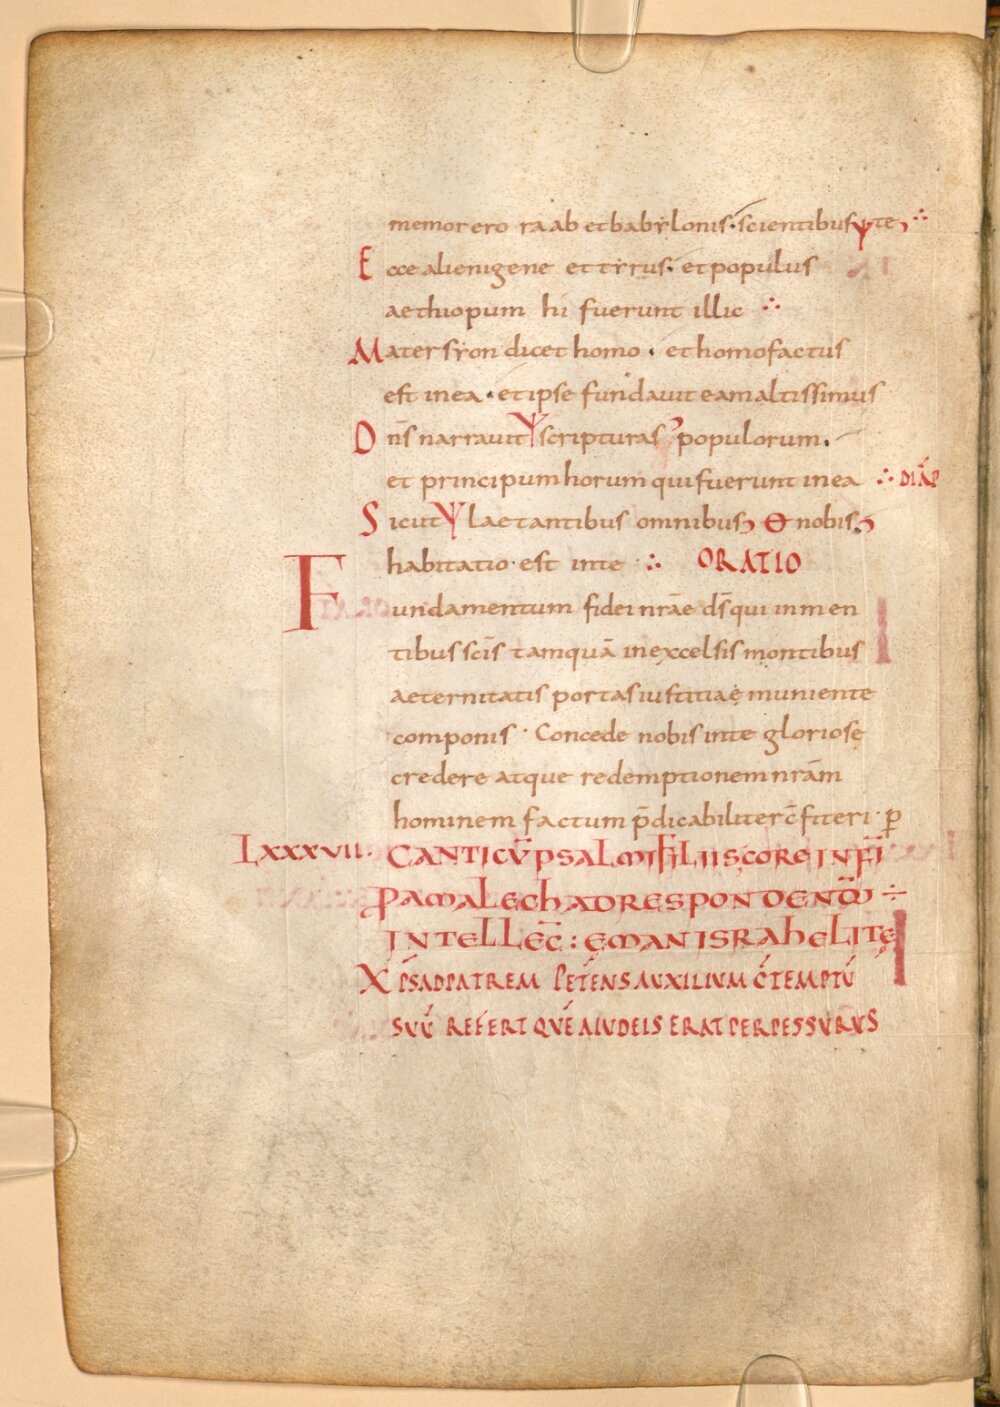 memor ero raab et babylonis · scientibus ψ te ∴
Ecce alienigene et tyrus · et populus
aethiopum hi fuerunt illic ∴
Mater syon dicet homo · et homo factus
est in ea · et ipse fundauit eam altissimus
Dn̄s narrauit ψ scripturas populorum ·
et principum horum qui fuerunt in ea ∴ DIAP
Sicut ψ laetantibus omnibus Θ nobis
habitatio est in te ∴ ORATIO
Fundamentum fidei nr̄ae ds̄ qui in men
tibus sc̄is tamquā in excelsis montibus
aeternitatis portas iustitiae muniente
componis · Concede nobis in te gloriose
credere atque redemptionem nr̄am
hominem factum p̄dicabiliter c̄fiteri · ꝑ
LXXXVII · CANTICV̄ PSALMI FILIIS CORE IN FĪ
P̱ AMALECH AD RESPONDENDŪ ÷
INTELLEC̄ : EMAN ISRAHELITE
XP̄S AD PATREM PETENS AUXILIUM C̄TEMPTŪ
SUŪ REFERT QUĒ A IUDEIS ERAT PERPESSURUS